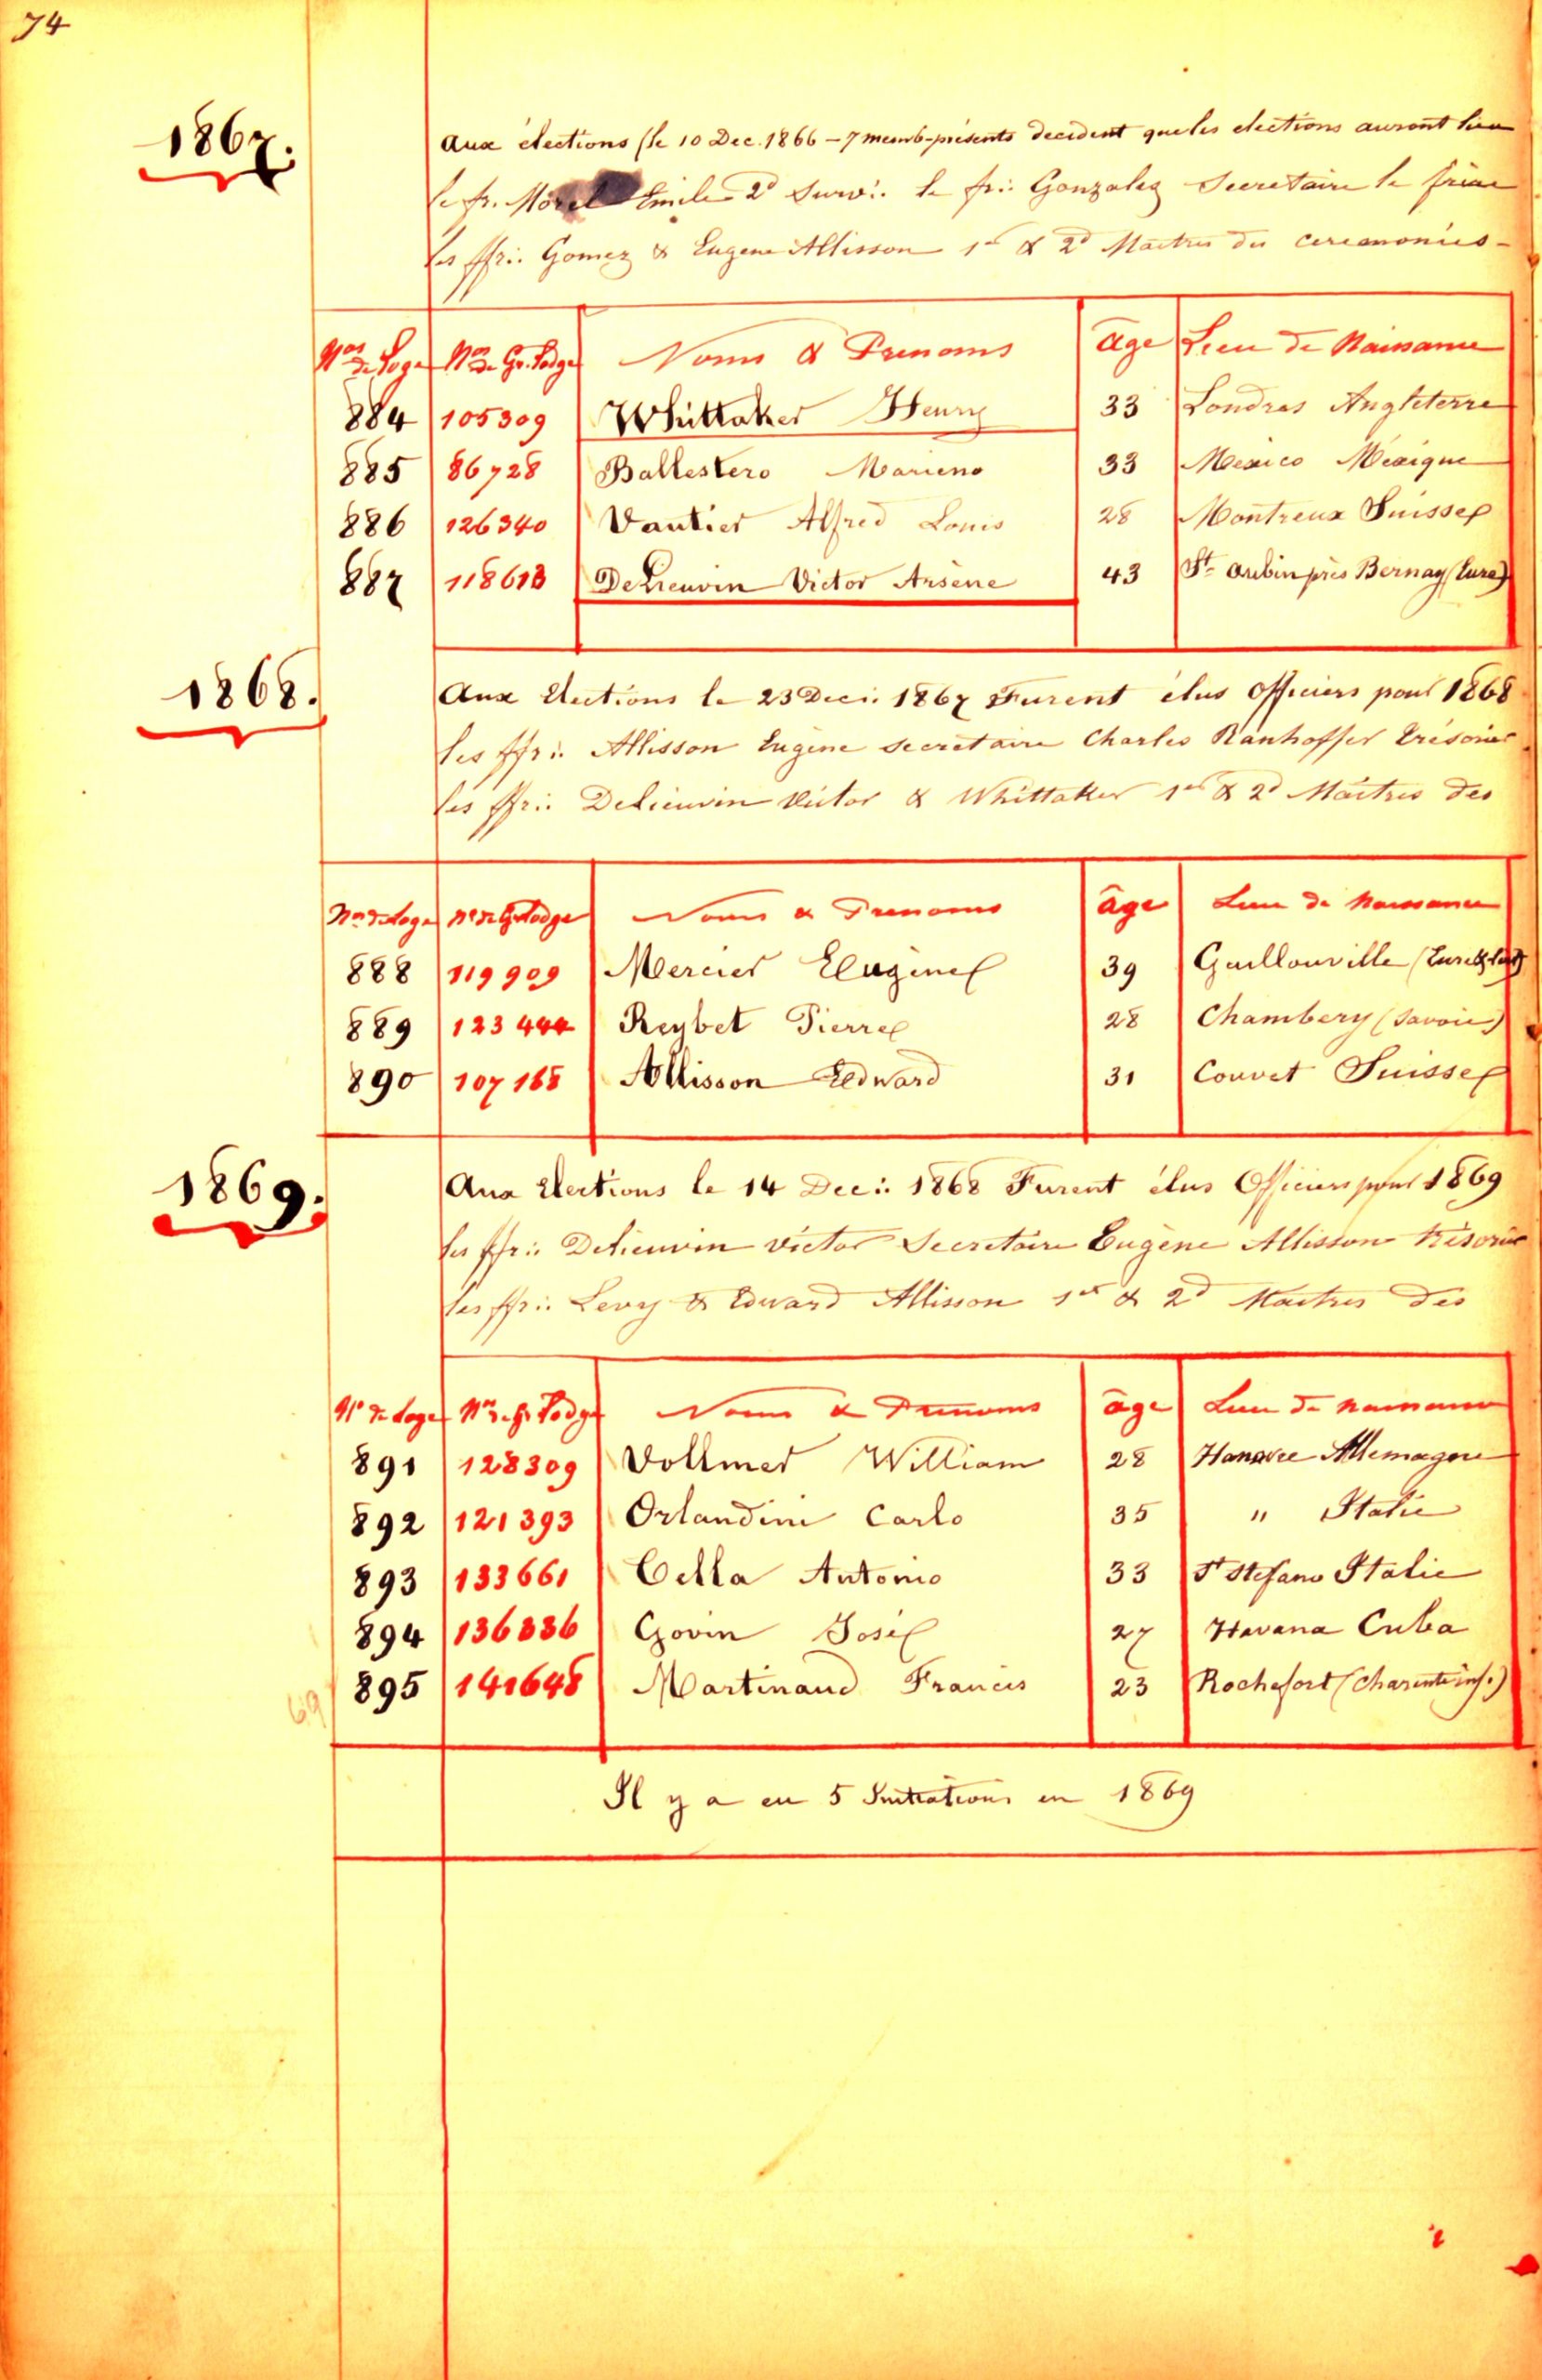 74
1867.
Aux élections (le 10 Dec. 1866 – 7 memb-présents decident que les elections auront lieu
le fr. Morel Emile 2d Surv∴ le fr∴ Gonzalez Secretaire le frère
les ffr∴ Gomez & Eugene Allisson 1er & 2d Maitres des ceremonies -
Nos de Loge Nos de Gr. Lodge Noms & Prenoms âge Lieu de Naissance
884 105309 Whittaker Henry 33 Londres Angleterre
885 86728 Ballestero Marieno 33 Mexico Méxique
886 126340 Vautier Alfred Louis 28 Montreux Suisse
887 118613 Delieuvin Victor Arsène 43 St. Aubin près Bernay (Eure)
1868.
Aux Elections le 23 Dec∴ 1867 Furent élus Officiers pour 1868
les ffr∴ Allisson Eugène secretaire Charles Ranhoffer Trésorier
les ffr∴ Delieuvin Victor & Whittaker 1er & 2d Maitres des
Nos de Loge Nos de Gr Lodge Noms & Prenoms âge Lieu de Naissance
888 119909 Mercier Eugène 39 Guillonville (Eure & Loir)
889 123444 Reybet Pierre 28 Chambery (Savoie)
890 107168 Allisson Edward 31 Couvet Suisse
1869.
Aux Elections le 14 Dec∴ 1868 Furent élus Officiers pour 1869
les ffr∴ Delieuvin Victor Secretaire Eugène Allisson trésorier
les ffr∴ Levy & Edward Allisson 1er & 2d Maitres des
No de Loge Nos de Gr Lodge Noms & Prenoms âge Lieu de naissance
891 128309 Vollmer William 28 Hanovre Allemagne
892 121393 Orlandini Carlo 35 " Italie
893 133661 Cella Antonio 33 St Stefano Italie
894 136336 Govin José 27 Havana Cuba
69 895 141648 Martinaud Francis 23 Rochefort (Charente inf.)
Il y a eu 5 Initiations en 1869